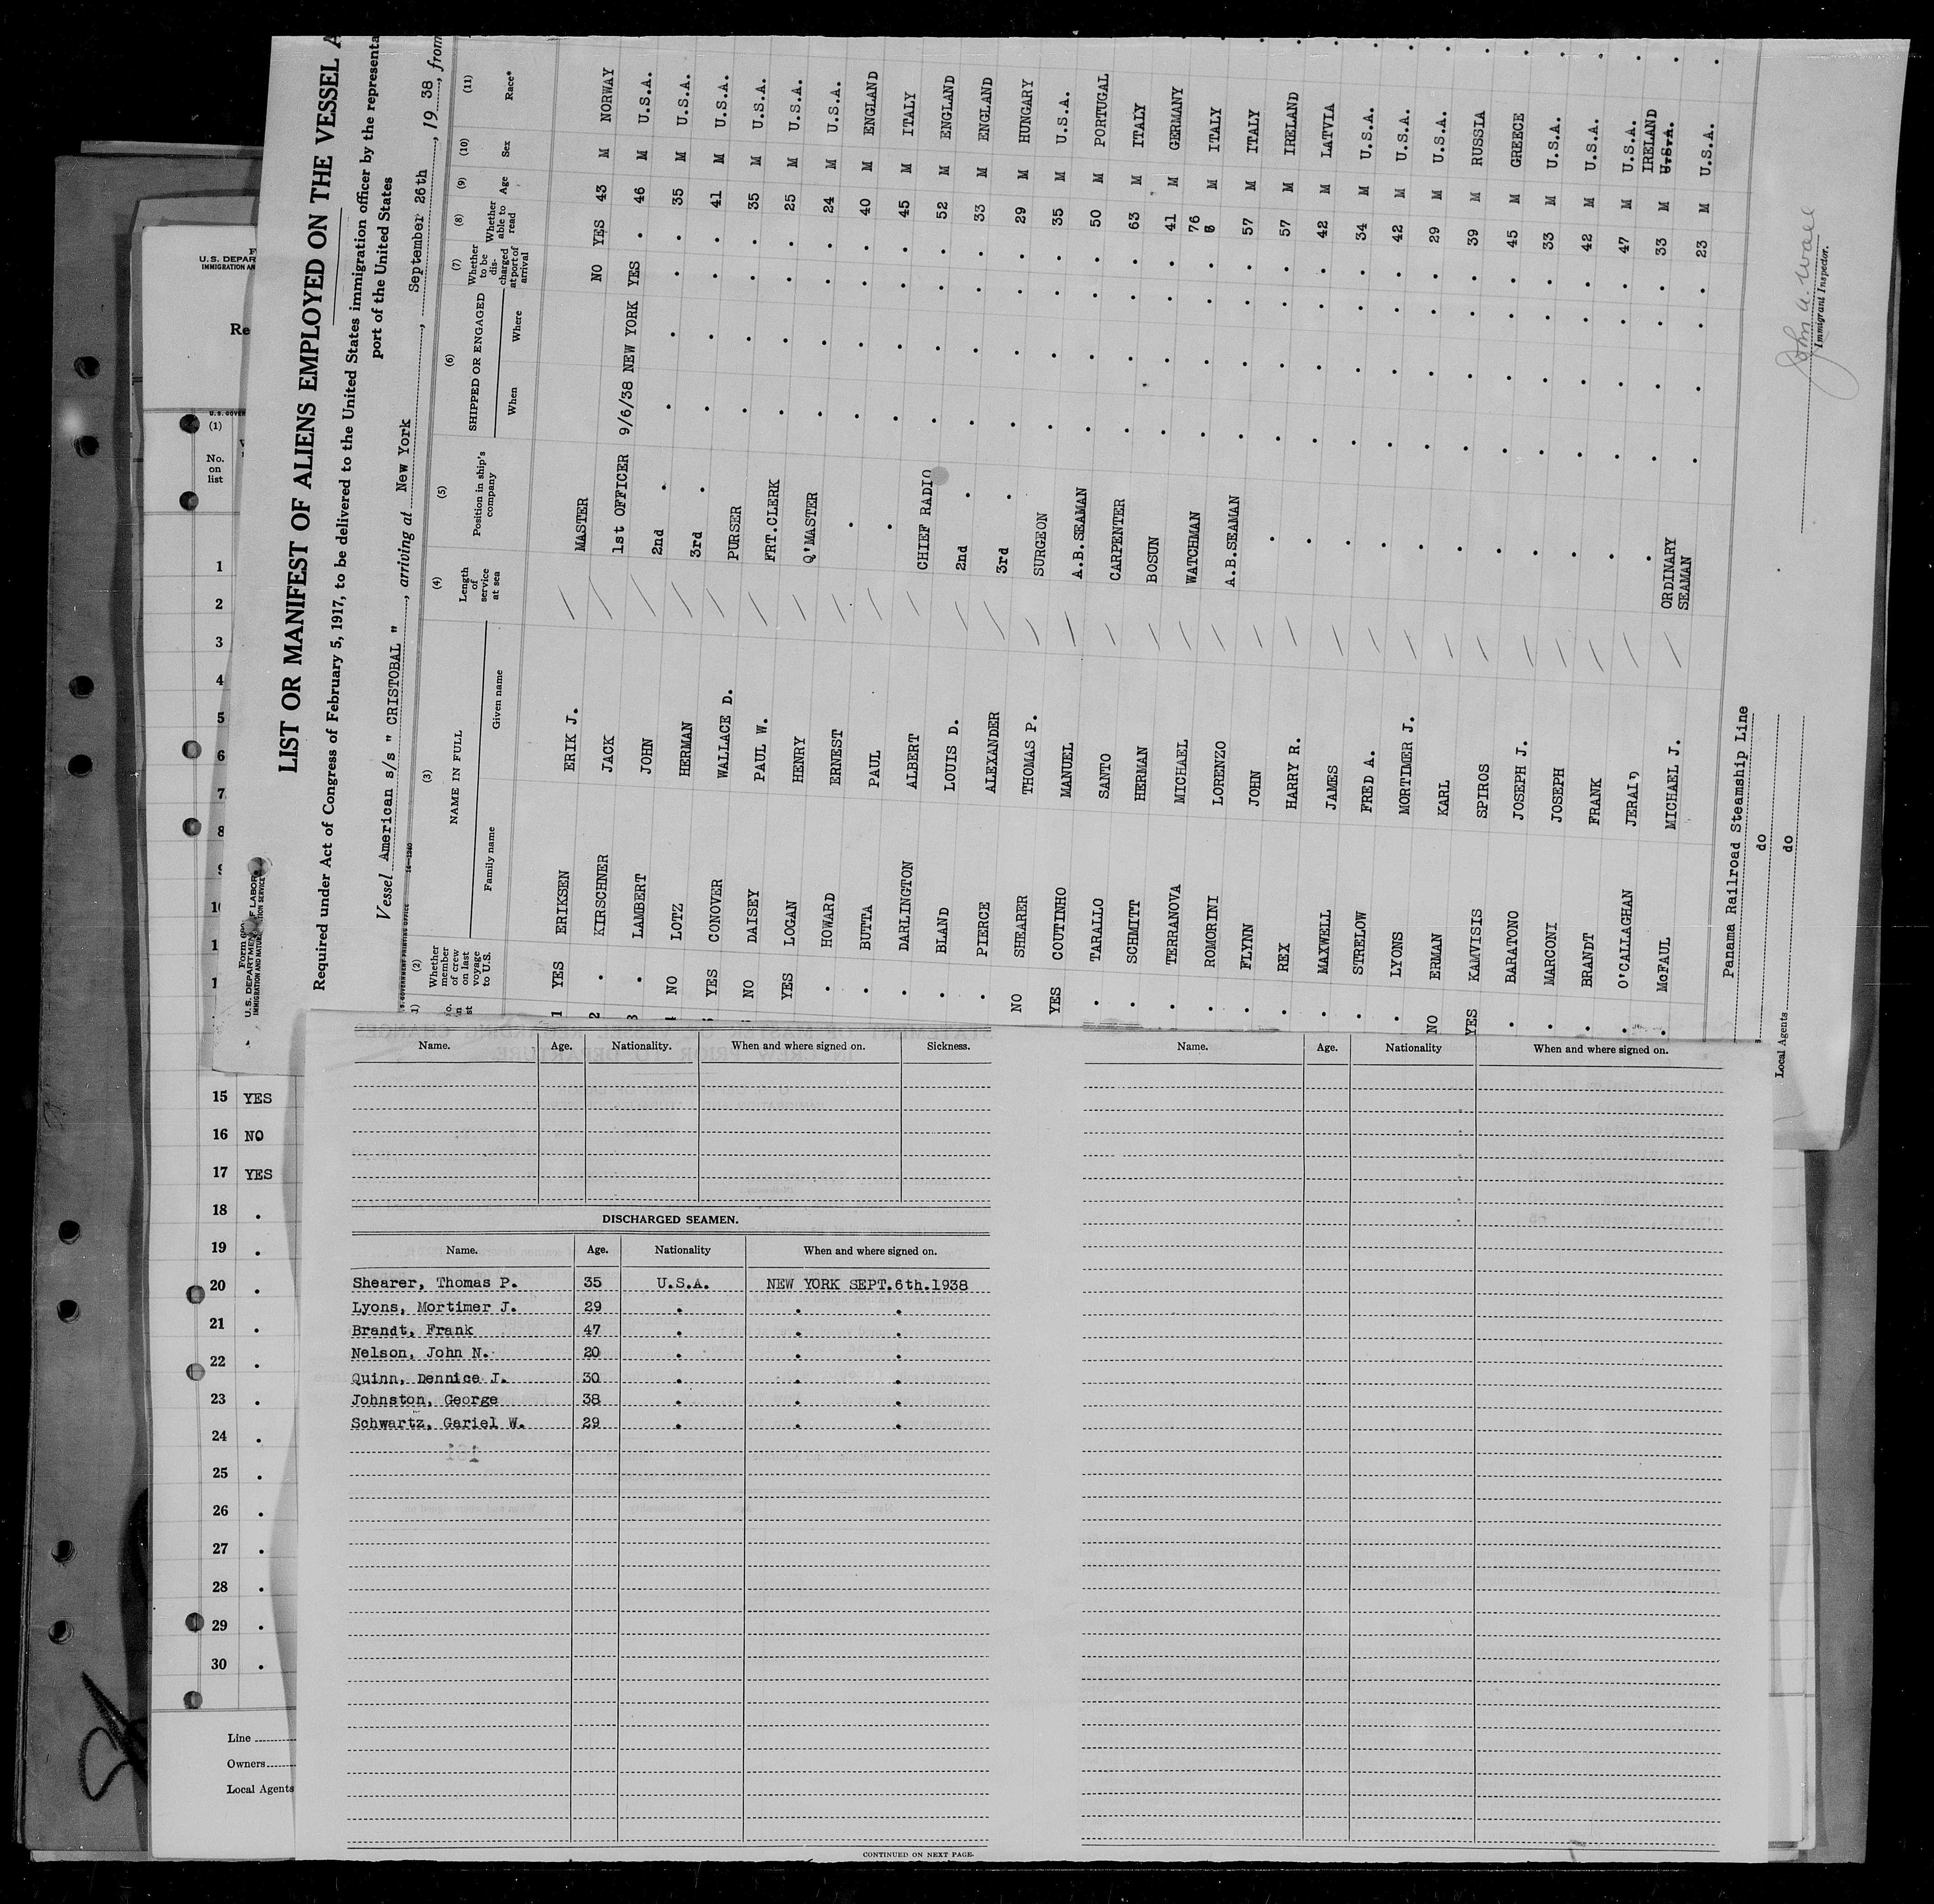 LIST OR MANIFEST OF ALIENS EMPLOYED ON THE VESSEL A
Required under Act of Congress of February 5, 1917, to be delivered to the United States immigration officer by the representa
port of the United States
Vessel American s/s " CRISTOBAL ", arriving at New York, September 26th, 19 38, from
(2) (3) (4) (5) (6) (7) (8) (9) (10) (11)
Whether member of crew on last voyage to U.S. NAME IN FULL Family name Given name Length of service at sea Position in ship's company SHIPPED OR ENGAGED When Where Whether to be discharged at port of arrival Whether able to read Age Sex Race*
1 YES ERIKSEN ERIK J. MASTER NO YES 43 M NORWAY
2 . KIRSCHNER JACK 1st OFFICER 9/6/38 NEW YORK YES . 46 M U.S.A.
3 . LAMBERT JOHN 2nd . . . . . 35 M U.S.A.
4 NO LOTZ HERMAN 3rd . . . . . 41 M U.S.A.
YES CONOVER WALLACE D. PURSER . . . . 35 M U.S.A.
NO DAISEY PAUL W. FRT.CLERK . . . . 25 M U.S.A.
YES LOGAN HENRY Q'MASTER . . . . 24 M U.S.A.
. HOWARD ERNEST . . . . . 40 M ENGLAND
. BUTTA PAUL . . . . . 45 M ITALY
. DARLINGTON ALBERT CHIEF RADIO . . . . 52 M ENGLAND
. BLAND LOUIS D. 2nd . . . . . 33 M ENGLAND
. PIERCE ALEXANDER 3rd . . . . . 29 M HUNGARY
NO SHEARER THOMAS P. SURGEON . . . . 35 M U.S.A.
YES COUTINHO MANUEL A.B.SEAMAN . . . . 50 M PORTUGAL
. TARALLO SANTO CARPENTER . . . . 63 M ITALY
. SCHMITT HERMAN BOSUN . . . . 41 M GERMANY
. TERRANOVA MICHAEL WATCHMAN . . . . 76 M ITALY
. ROMORINI LORENZO A.B.SEAMAN . . . . 57 M ITALY
. FLYNN JOHN . . . . . 57 M IRELAND
. REX HARRY R. . . . . . 42 M LATVIA
. MAXWELL JAMES . . . . . 34 M U.S.A.
. STRELOW FRED A. . . . . . 42 M U.S.A.
. LYONS MORTIMER J. . . . . . 29 M U.S.A.
NO ERMAN KARL . . . . . 39 M RUSSIA
YES KAMVISIS SPIROS . . . . . 45 M GREECE
. BARATONO JOSEPH J. . . . . . 33 M U.S.A.
. MARCONI JOSEPH . . . . . 42 M U.S.A.
. BRANDT FRANK . . . . . 47 M U.S.A.
. O'CALLAGHAN . . . . . 33 M IRELAND U.S.A.
. McFAUL MICHAEL J. ORDINARY SEAMAN . . . . 23 M U.S.A.
Panama Railroad Steamship Line
do
Local Agents do
John A. Wall
Immigrant Inspector.
Form 689
U.S. DEPARTMENT OF LABOR
U.S. DEPAR
IMMIGRATION AN
Re
U.S. GOVER
(1)
No. on list
1
2
3
4
5
6
7
8
15 YES
16 NO
17 YES
18 .
19 .
20 .
21 .
22 .
23 .
24 .
25 .
26 .
27 .
28 .
29 .
30 .
Line
Owners
Local Agents
Name. Age. Nationality. When and where signed on. Sickness.
DISCHARGED SEAMEN.
Name. Age. Nationality When and where signed on.
Shearer, Thomas P. 35 U.S.A. NEW YORK SEPT.6th.1938
Lyons, Mortimer J. 29 . . .
Brandt, Frank 47 . . .
Nelson, John N. 20 . . .
Quinn, Dennice J. 30 . . .
Johnston, George 38 . . .
Schwartz, Gariel W. 29 . . .
CONTINUED ON NEXT PAGE.
Name. Age. Nationality When and where signed on.